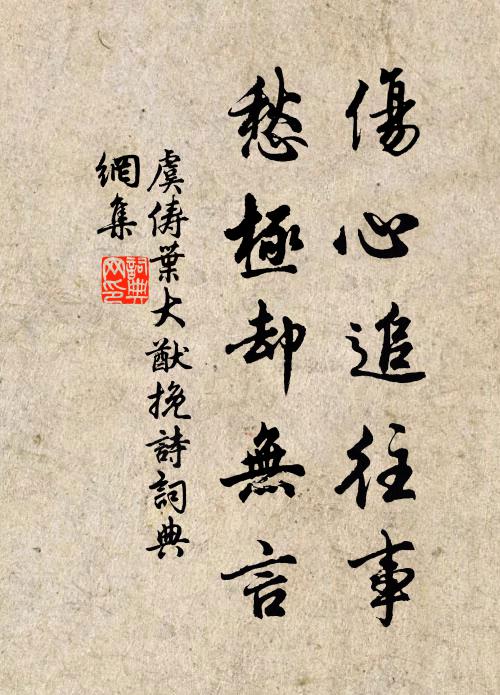 傷心追往事
愁極却無言
虞儔葉大猷挽詩詞典
網集
詞典
网印